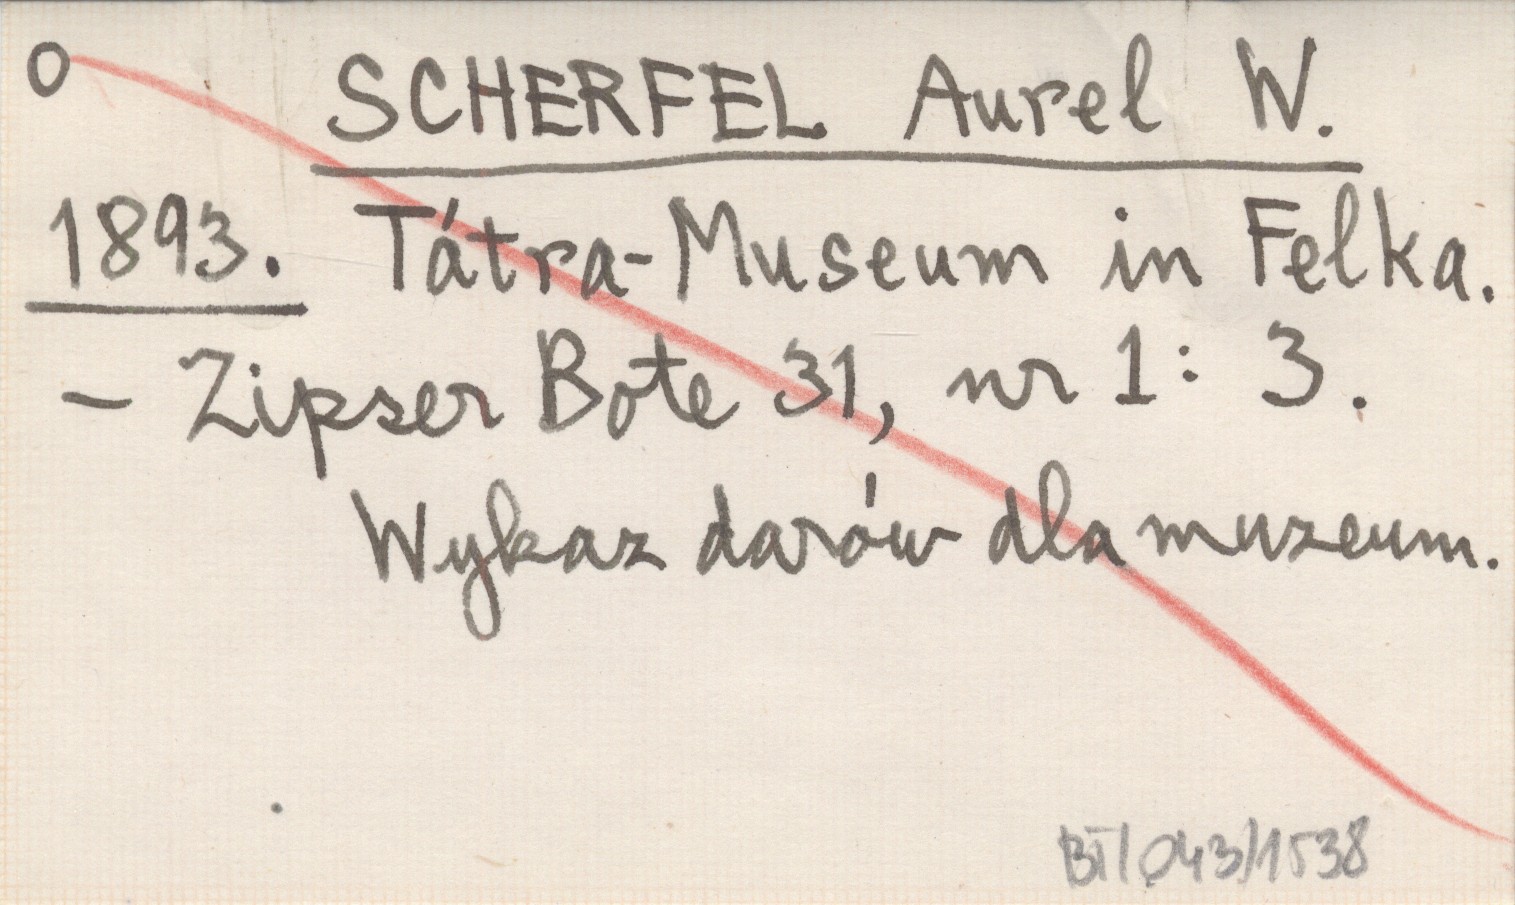 O SCHERFEL Aurel W.
1893. Tátra-Museum in Felka.
- Zipser Bote 31, nr 1: 3.
Wykaz darów dla muzeum.
BT/043/1538